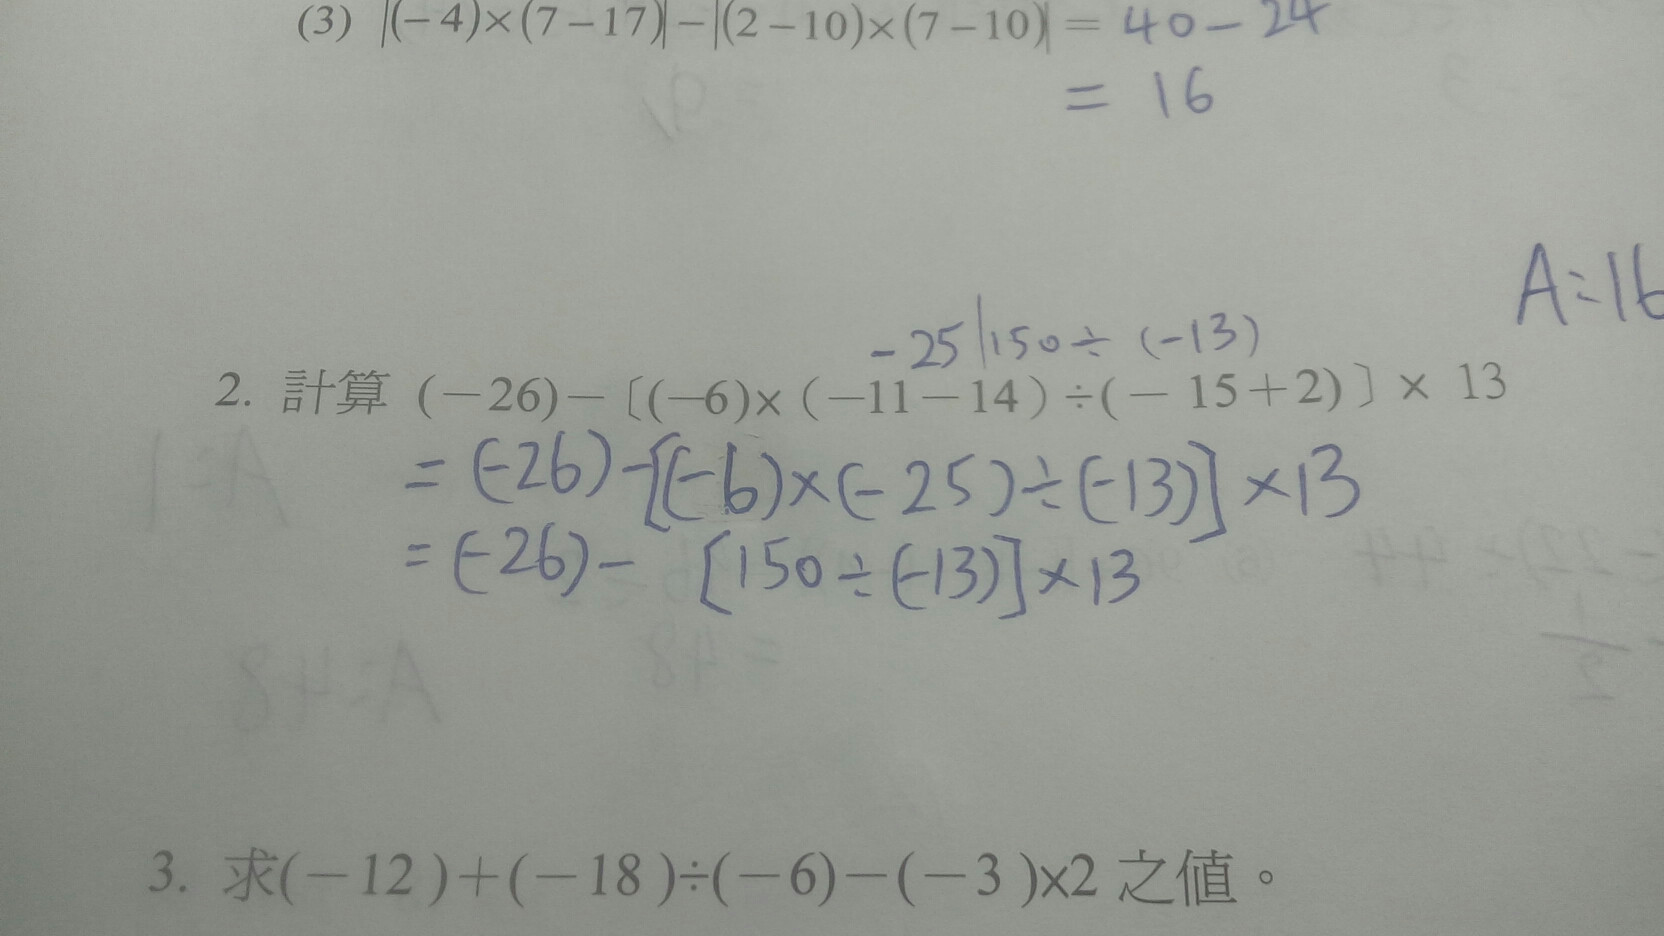 (3) |(−4)×(7−17)|−|(2−10)×(7−10)| = 40 − 24
= 16
A:16
-25 | 150 ÷ (-13)
2. 計算 (−26)−〔(−6)×(−11−14)÷(−15+2)〕× 13
= (-26) -[(-6)×(-25)÷(-13)]×13
= (-26) - [150÷(-13)]×13
3. 求(−12)+(−18)÷(−6)−(−3)×2 之值。